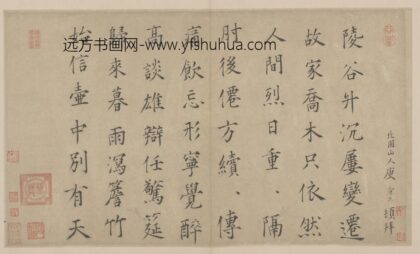 远方书画网-www.yfshuhua.com
陵谷升沉屢變遷
故家喬木只依然
人間烈日重、隔
肘後僊方續、傳
痛飲忘形寧覺醉
高談雄辯任驚筵
歸來暮雨瀉簷竹
始信壺中別有天